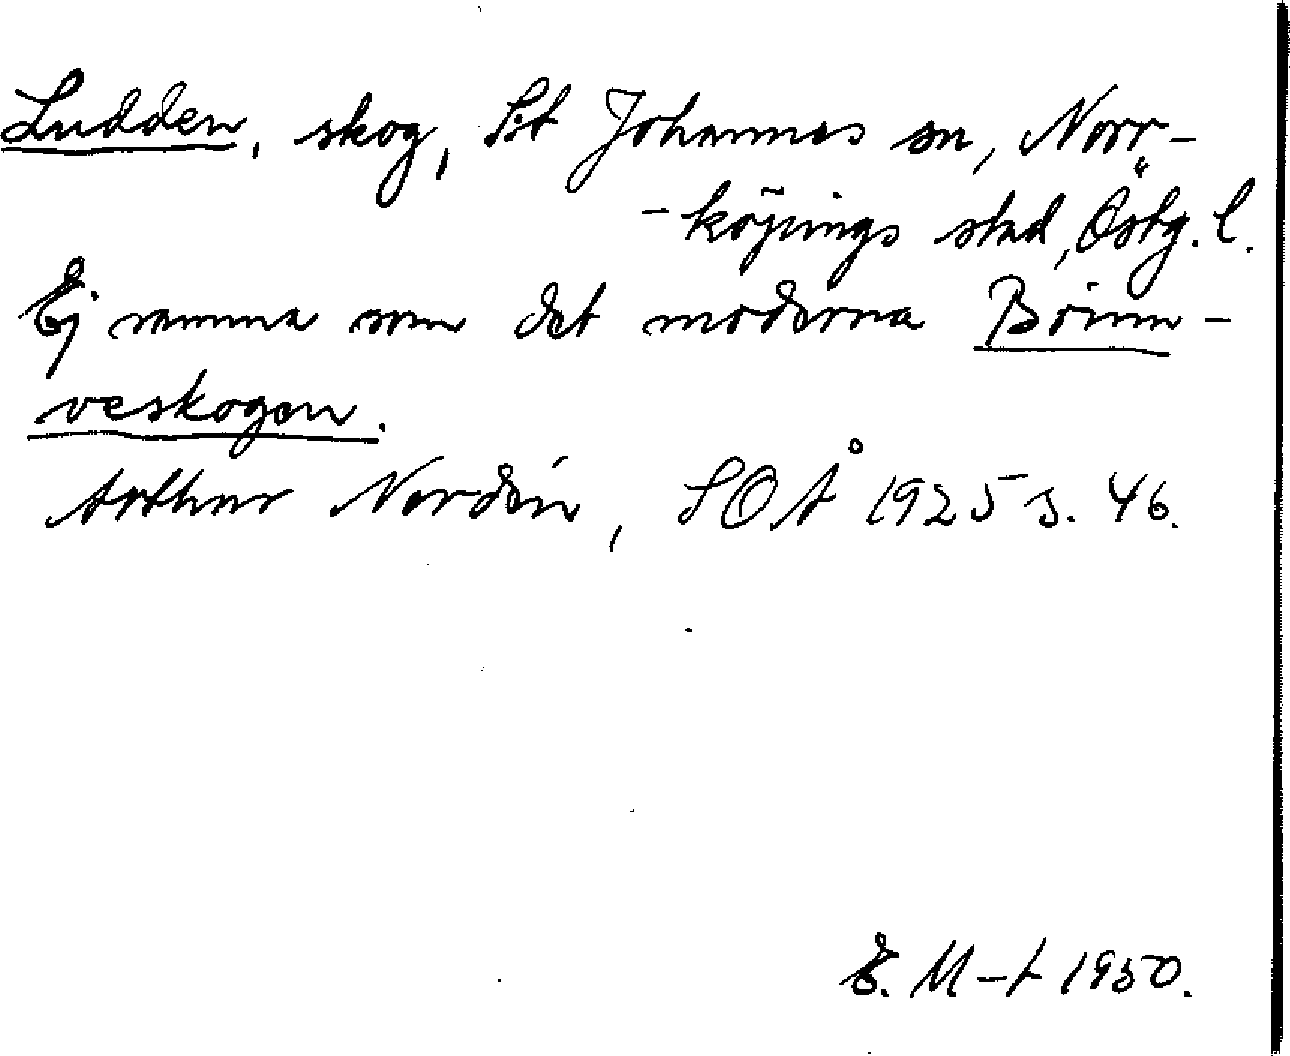 Ludden, skog, S:t Johannes sn, Norr-
-köpings stad, Östg. l.
Ej samma som det moderna Brinn-
veskogen.
Arthur Nordén, SOÅ 1925 s. 46.
E. M-t 1950.